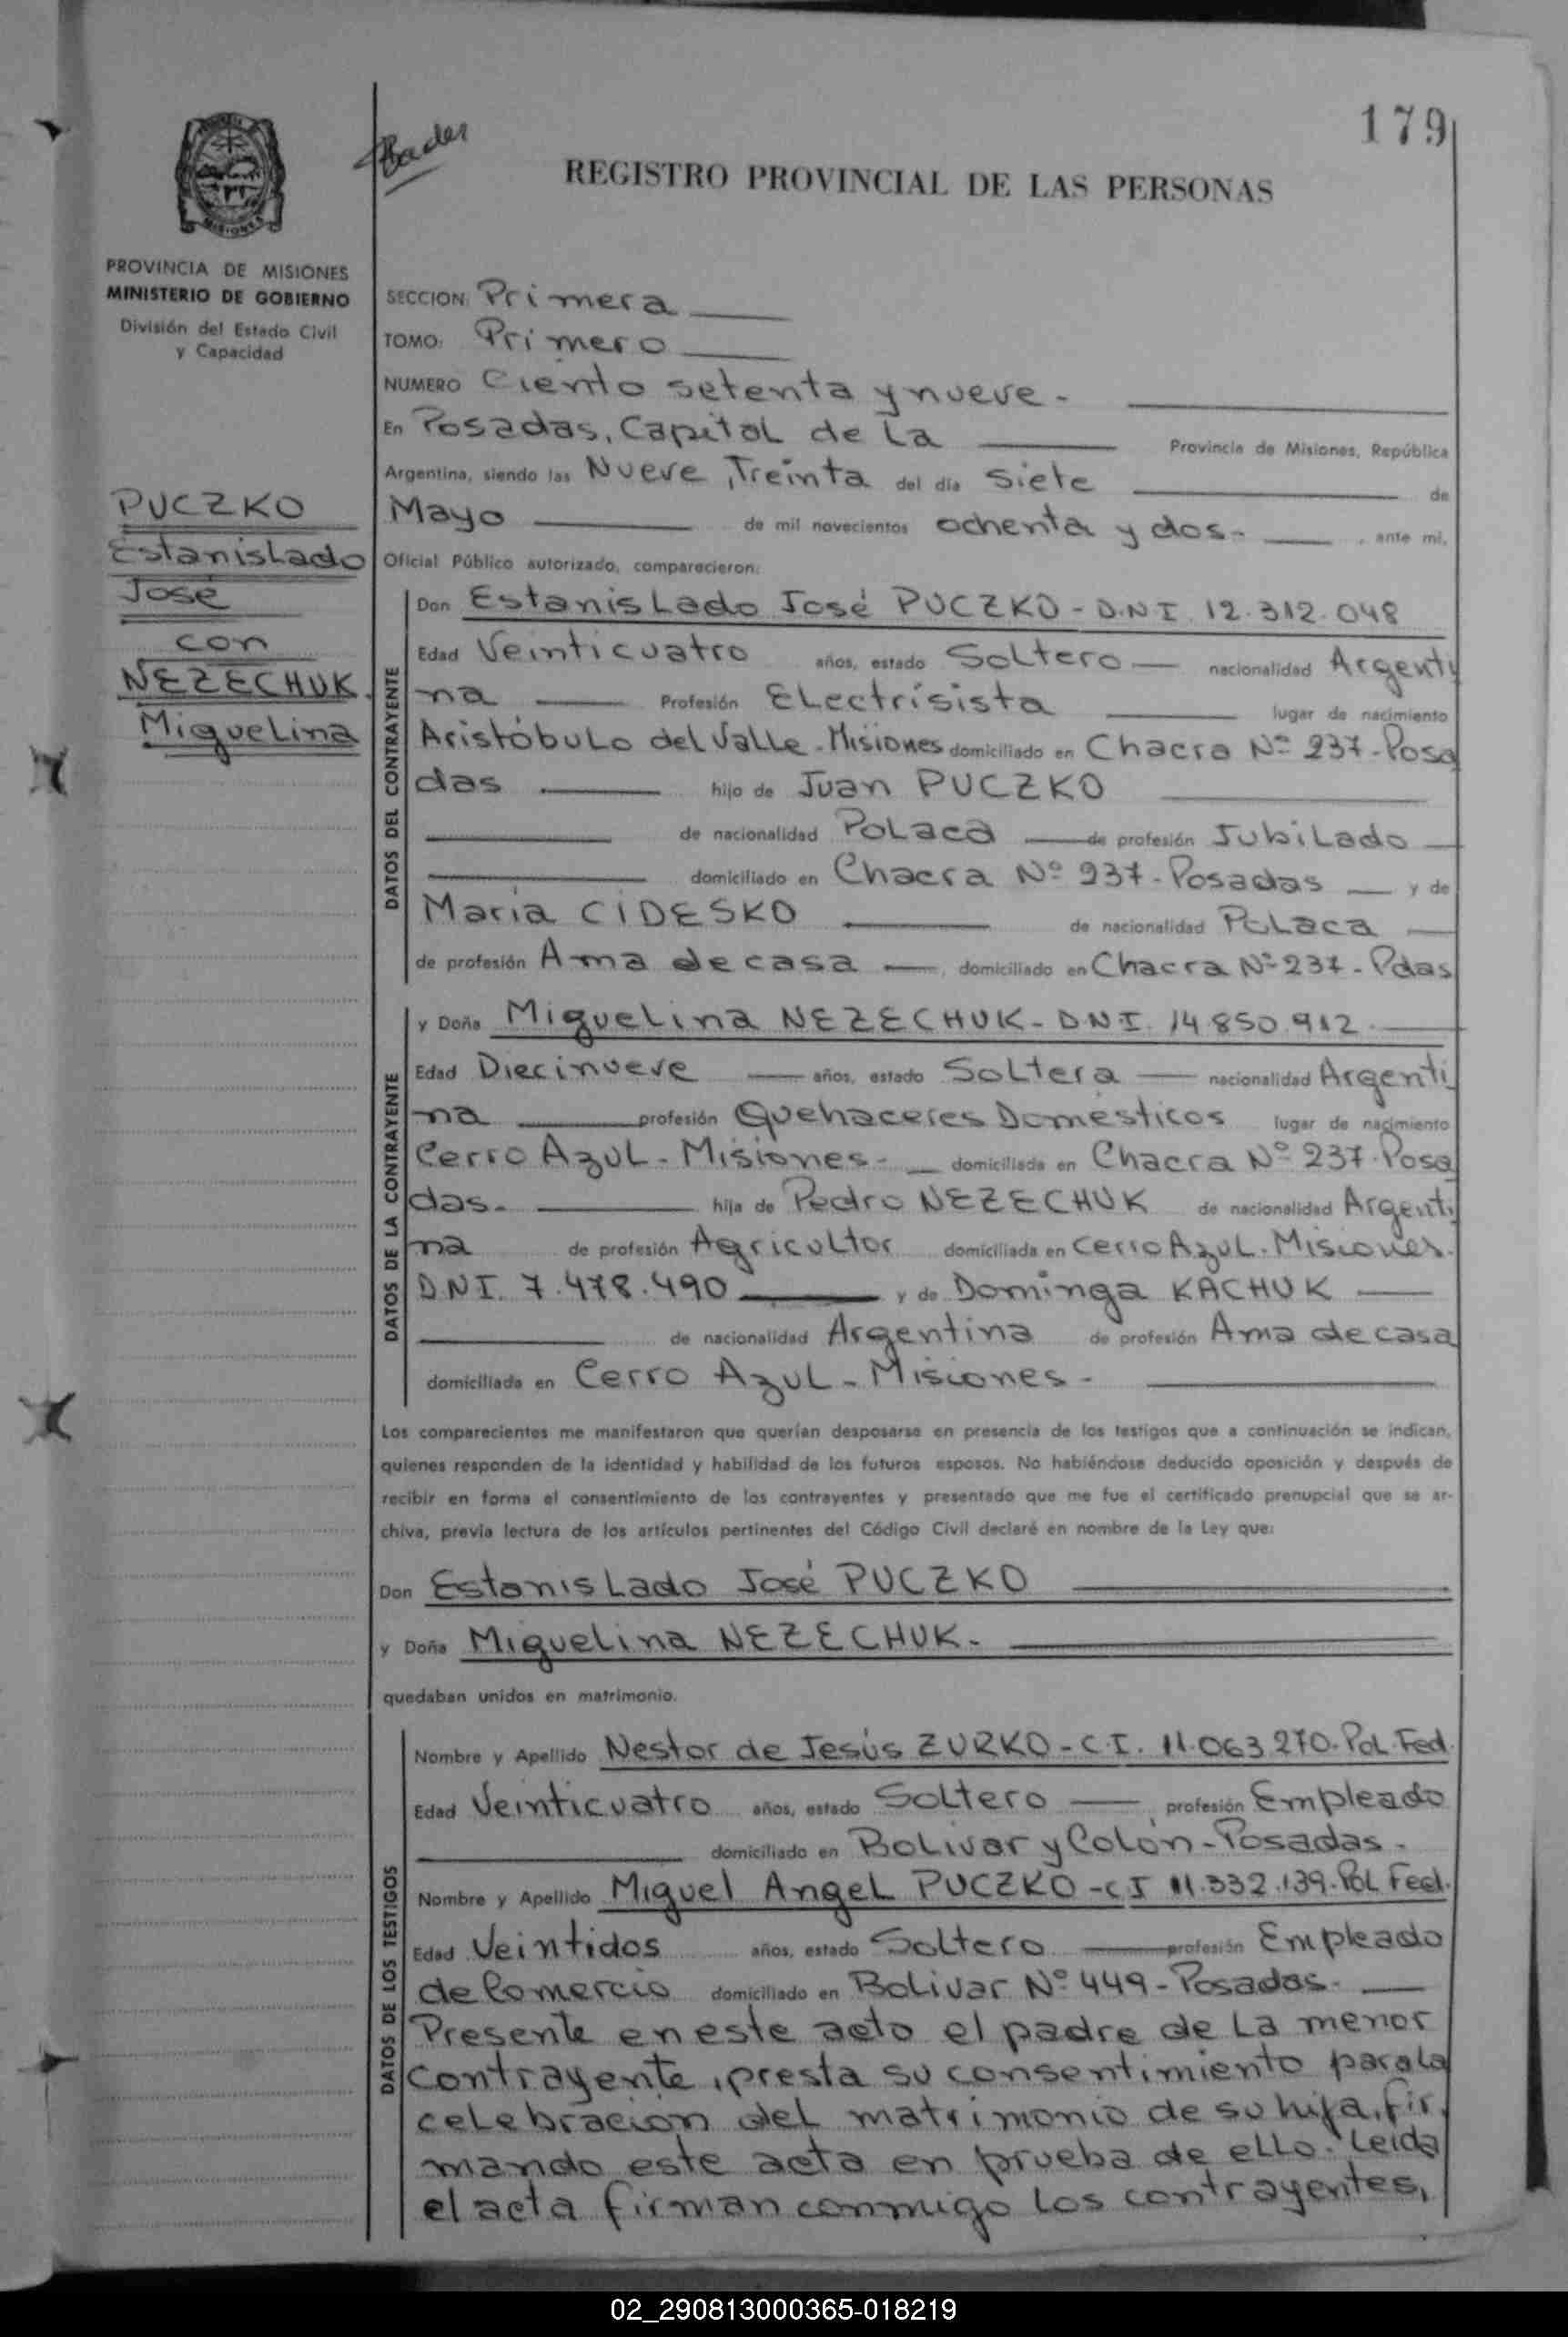 179
Bader
REGISTRO PROVINCIAL DE LAS PERSONAS
MISIONES
PROVINCIA DE MISIONES
MINISTERIO DE GOBIERNO
División del Estado Civil
y Capacidad
PUCZKO
Estanislado
José
con
NEZECHUK
Miguelina
SECCION: Primera
TOMO: Primero
NUMERO Ciento setenta y nueve.-
En Posadas, Capital de La Provincia de Misiones, República
Argentina, siendo las Nueve, Treinta del día Siete de
Mayo de mil novecientos ochenta y dos.- , ante mi,
Oficial Público autorizado, comparecieron:
DATOS DEL CONTRAYENTE
Don Estanislado José PUCZKO - D.N.I. 12.312.048
Edad Veinticuatro años, estado Soltero — nacionalidad Argenti
na Profesión Electrisista lugar de nacimiento
Aristóbulo del Valle - Misiones domiciliado en Chacra Nº 237 - Posa
das hijo de Juan PUCZKO
de nacionalidad Polaca de profesión Jubilado
domiciliado en Chacra Nº 237 - Posadas — y de
Maria CIDESKO de nacionalidad Polaca
de profesión Ama de casa —, domiciliado en Chacra Nº 237 - Pdas
DATOS DE LA CONTRAYENTE
y Doña Miguelina NEZECHUK - D.N.I. 14.850.912.
Edad Diecinueve años, estado Soltera — nacionalidad Argenti
na profesión Quehaceres Domésticos lugar de nacimiento
Cerro Azul - Misiones - domiciliada en Chacra Nº 237 - Posa
das.- hija de Pedro NEZECHUK de nacionalidad Argenti
na de profesión Agricultor domiciliada en Cerro Azul - Misiones.
DNI. 7.478.490 y de Dominga KACHUK
de nacionalidad Argentina de profesión Ama de casa
domiciliada en Cerro Azul - Misiones -
Los comparecientes me manifestaron que querían desposarse en presencia de los testigos que a continuación se indican,
quienes responden de la identidad y habilidad de los futuros esposos. No habiéndose deducido oposición y después de
recibir en forma el consentimiento de los contrayentes y presentado que me fue el certificado prenupcial que se ar-
chiva, previa lectura de los artículos pertinentes del Código Civil declaré en nombre de la Ley que:
Don Estanislado José PUCZKO
y Doña Miguelina NEZECHUK.-
quedaban unidos en matrimonio.
DATOS DE LOS TESTIGOS
Nombre y Apellido Nestor de Jesús ZURKO - C.I. 11.063.270. Pol. Fed.
Edad Veinticuatro años, estado Soltero — profesión Empleado
domiciliado en Bolivar y Colón - Posadas -
Nombre y Apellido Miguel Angel PUCZKO - C I 11.332.139. Pol Fed.
Edad Veintidos años, estado Soltero profesión Empleado
de Comercio domiciliado en Bolivar Nº 449 - Posadas.
Presente en este acto el padre de La menor
contrayente, presta su consentimiento para la
celebración del matrimonio de su hija, fir
mando este acta en prueba de ello. Leida
el acta firman conmigo los contrayentes,
02_290813000365-018219